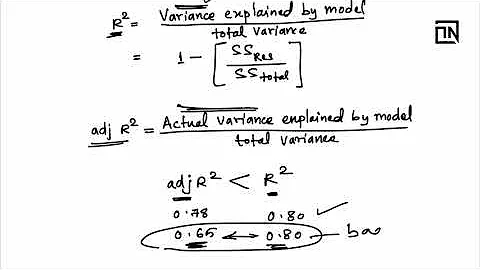 R² = Variance explained by model / total variance
= 1 - [ SSRes / SStotal ]
adj R² = Actual variance enplained by model / total variance
adj R² < R²
0.78 0.80 ✓
0.65 ↔ 0.80 —